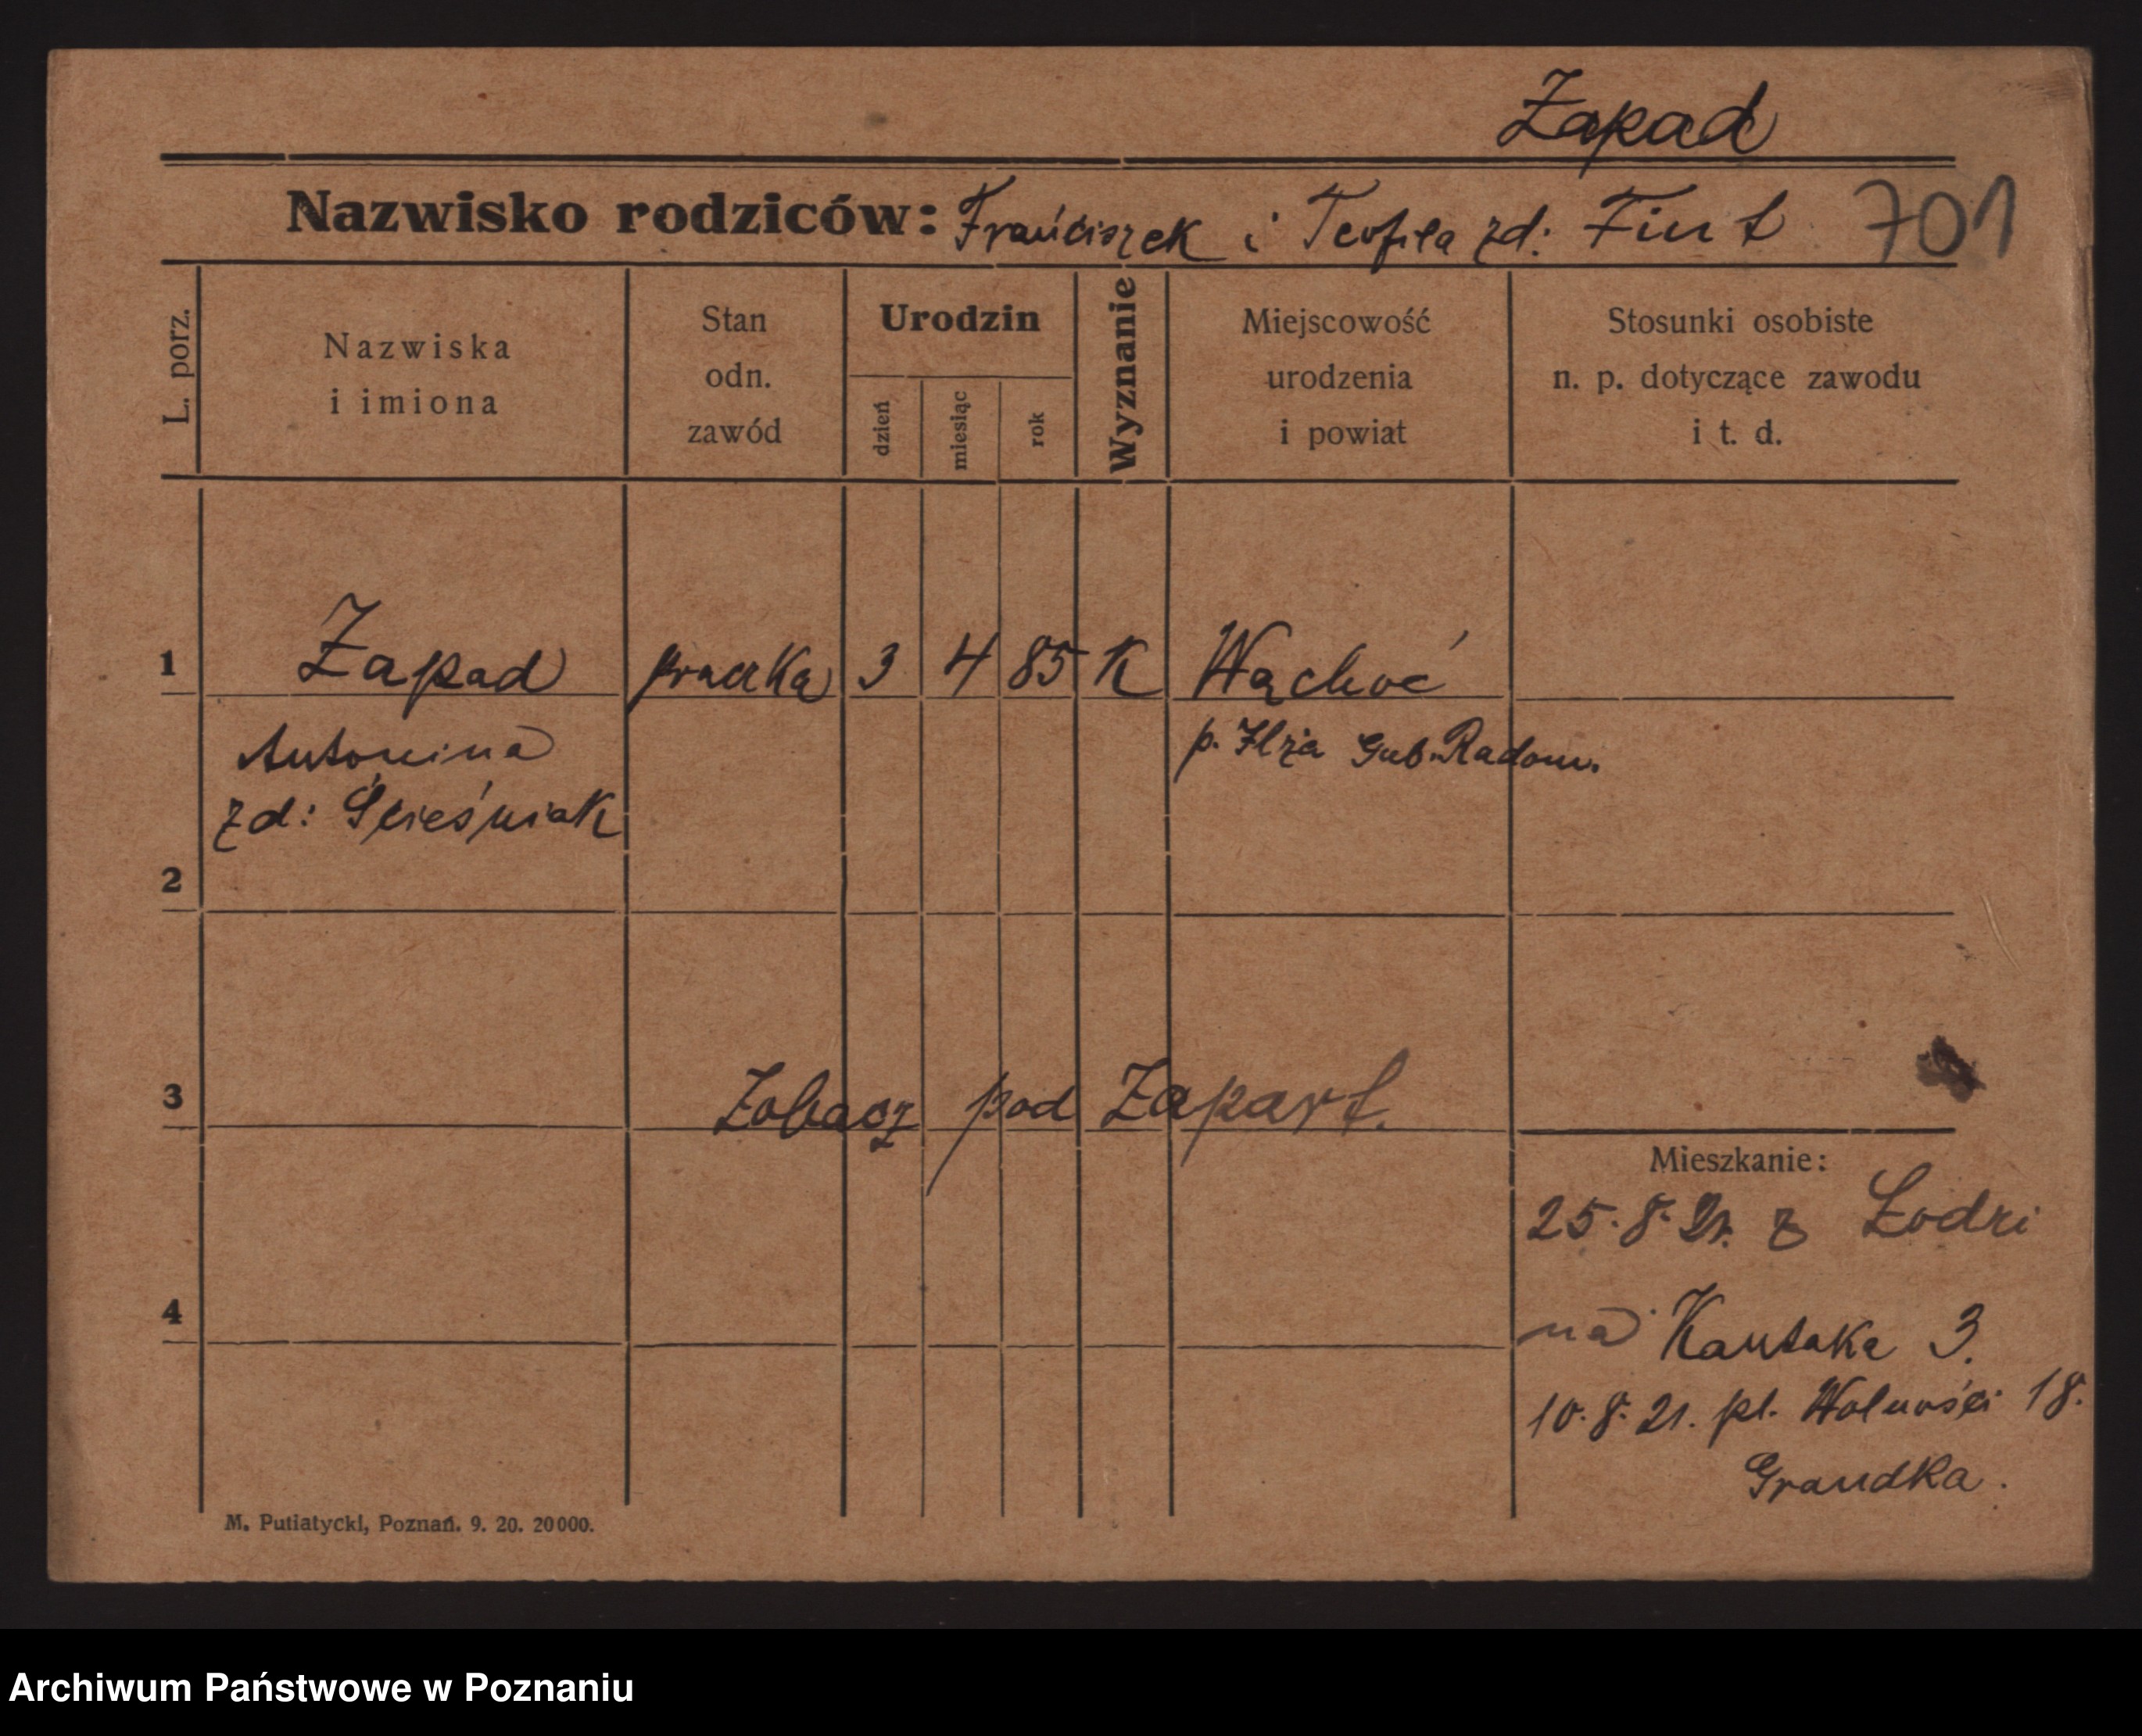 Zapad
Nazwisko rodziców: Franciszek i Teofila zd: Fint 701
L. porz.
Nazwiska
i imiona
Stan
odn.
zawód
Urodzin
dzień
miesiąc
rok
Wyznanie
Miejscowość
urodzenia
i powiat
Stosunki osobiste
n. p. dotyczące zawodu
i t. d.
1 Zapad praczka 3 4 85 K Wąchoć
Antonina p. Ilża Gub. Radom.
zd: Ścieśniak
2
3 Zobacz pod Zapart.
Mieszkanie:
25.8.21. z Łodzi
4
na Kantaka 3.
10.8.21. pl. Wolności 18.
Grandka.
M. Putiatycki, Poznań. 9. 20. 20000.
Archiwum Państwowe w Poznaniu